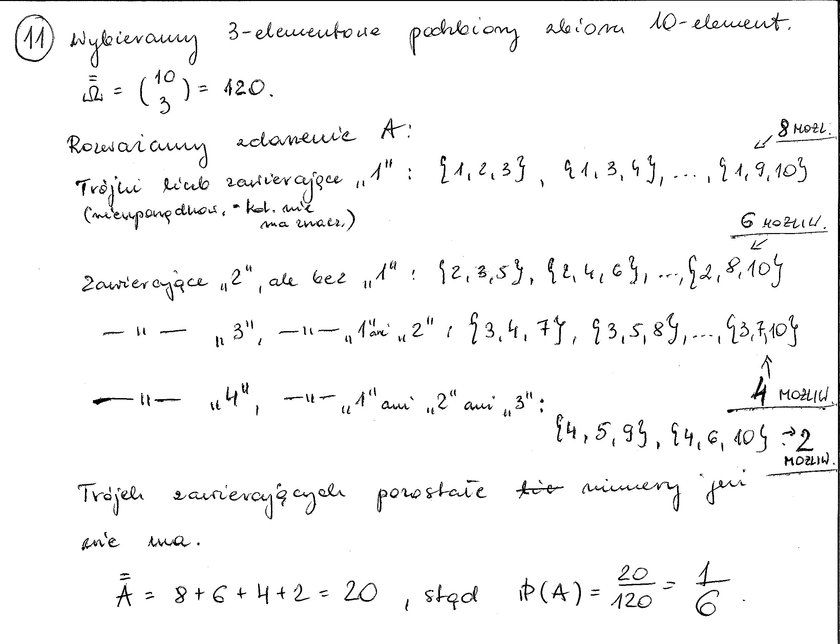 11 Wybieramy 3-elementowe podzbiory zbioru 10-element.
Ω̿ = (10 3) = 120.
Rozważamy zdarzenie A:
8 MOŻL.
Trójki liczb zawierające „1" : {1,2,3}, {1,3,4}, ..., {1,9,10}
(nieuporządkow. - kol. nie
ma znacz.)
6 MOŻLIW.
Zawierające „2", ale bez „1" : {2,3,5}, {2,4,6}, ..., {2,8,10}
— " — „3", — " — „1" ani „2" : {3,4,7}, {3,5,8}, ..., {3,7,10}
4 MOŻLIW.
— " — „4", — " — „1" ani „2" ani „3" :
{4,5,9}, {4,6,10} → 2
MOŻLIW.
Trójek zawierających pozostałe numery już
nie ma.
A̿ = 8+6+4+2 = 20 , stąd P(A) = 20/120 = 1/6 .